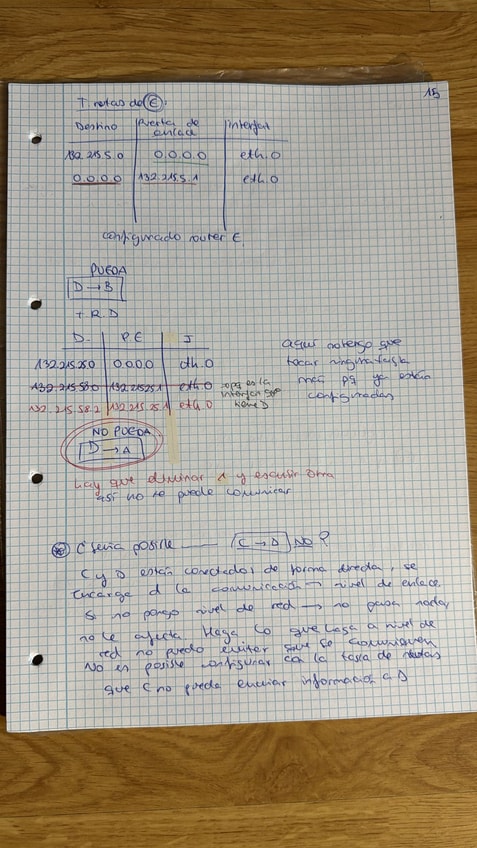 15
T. rutas de E:
Destino | Puerta de enlace | Interfaz
132.215.5.0 | 0.0.0.0 | eth.0
0.0.0.0 | 132.215.5.1 | eth.0
configurado router E
PUEDA
D → B
T R.D
D. | P.E | I
132.215.25.0 | 0.0.0.0 | eth.0
132.215.58.0 | 132.215.25.1 | eth.0 → pq es la interfaz que tiene D
132.215.58.2 | 132.215.25.1 | eth.0
aquí no tengo que
tocar ninguna tabla
más pq ya están
configuradas
NO PUEDA
D → A
Hay que eliminar 1 y escribir otra
así no se puede comunicar
Sería posible C → D NO?
C y D están conectados de forma directa, se
encarga d la comunicación → nivel de enlace.
Si no pongo nivel de red → no pasa nada,
no le afecta. Haga lo que haga a nivel de
red no puedo evitar que se comuniquen
No es posible configurar con la tabla de rutas
que C no pueda enviar información a D